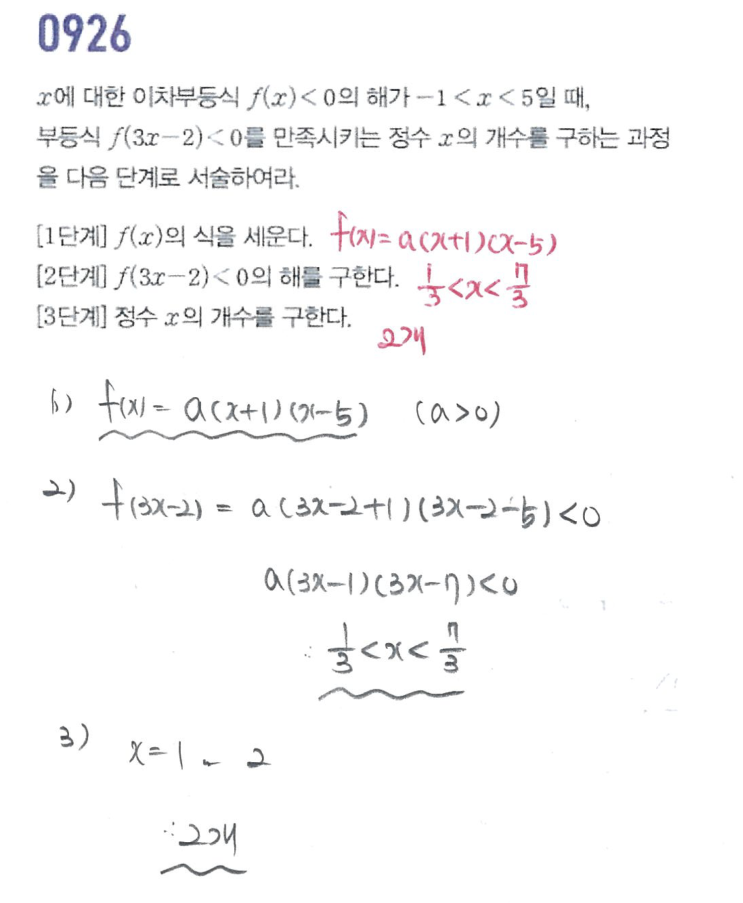 0926
x에 대한 이차부등식 f(x)<0의 해가 -1<x<5일 때,
부등식 f(3x-2)<0를 만족시키는 정수 x의 개수를 구하는 과정
을 다음 단계로 서술하여라.
[1단계] f(x)의 식을 세운다. f(x)=a(x+1)(x-5)
[2단계] f(3x-2)<0의 해를 구한다. 1/3<x<7/3
[3단계] 정수 x의 개수를 구한다.
2개
1) f(x)=a(x+1)(x-5) (a>0)
2) f(3x-2)=a(3x-2+1)(3x-2-5)<0
a(3x-1)(3x-7)<0
∴ 1/3<x<7/3
3) x=1 ~ 2
∴2개